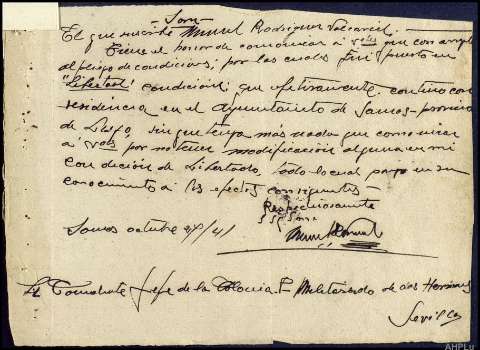 Som
El que suscribe Manuel Rodriguez Valcarcel
Tiene el honor de comunicar á Vdes que con arreglo
al pliego de condicions, por las cuales fui puesto en
"Libertad" condicional que efetivamente, continuo con
residencia en el Ayuntamiento de Samos - provincia
de Lugo, sin que tenga más nada que comunicar
á Vdes por no tener modificación alguna en mi
condición de Libertado, todo lo cual pongo en su
conocimiento á los efectos consiguientes -
Respetuosamente
Samos octubre 41
Sr Comandante Jefe de la Colonia P. Militarizado de dos Hermanas
Sevilla
AHPLu